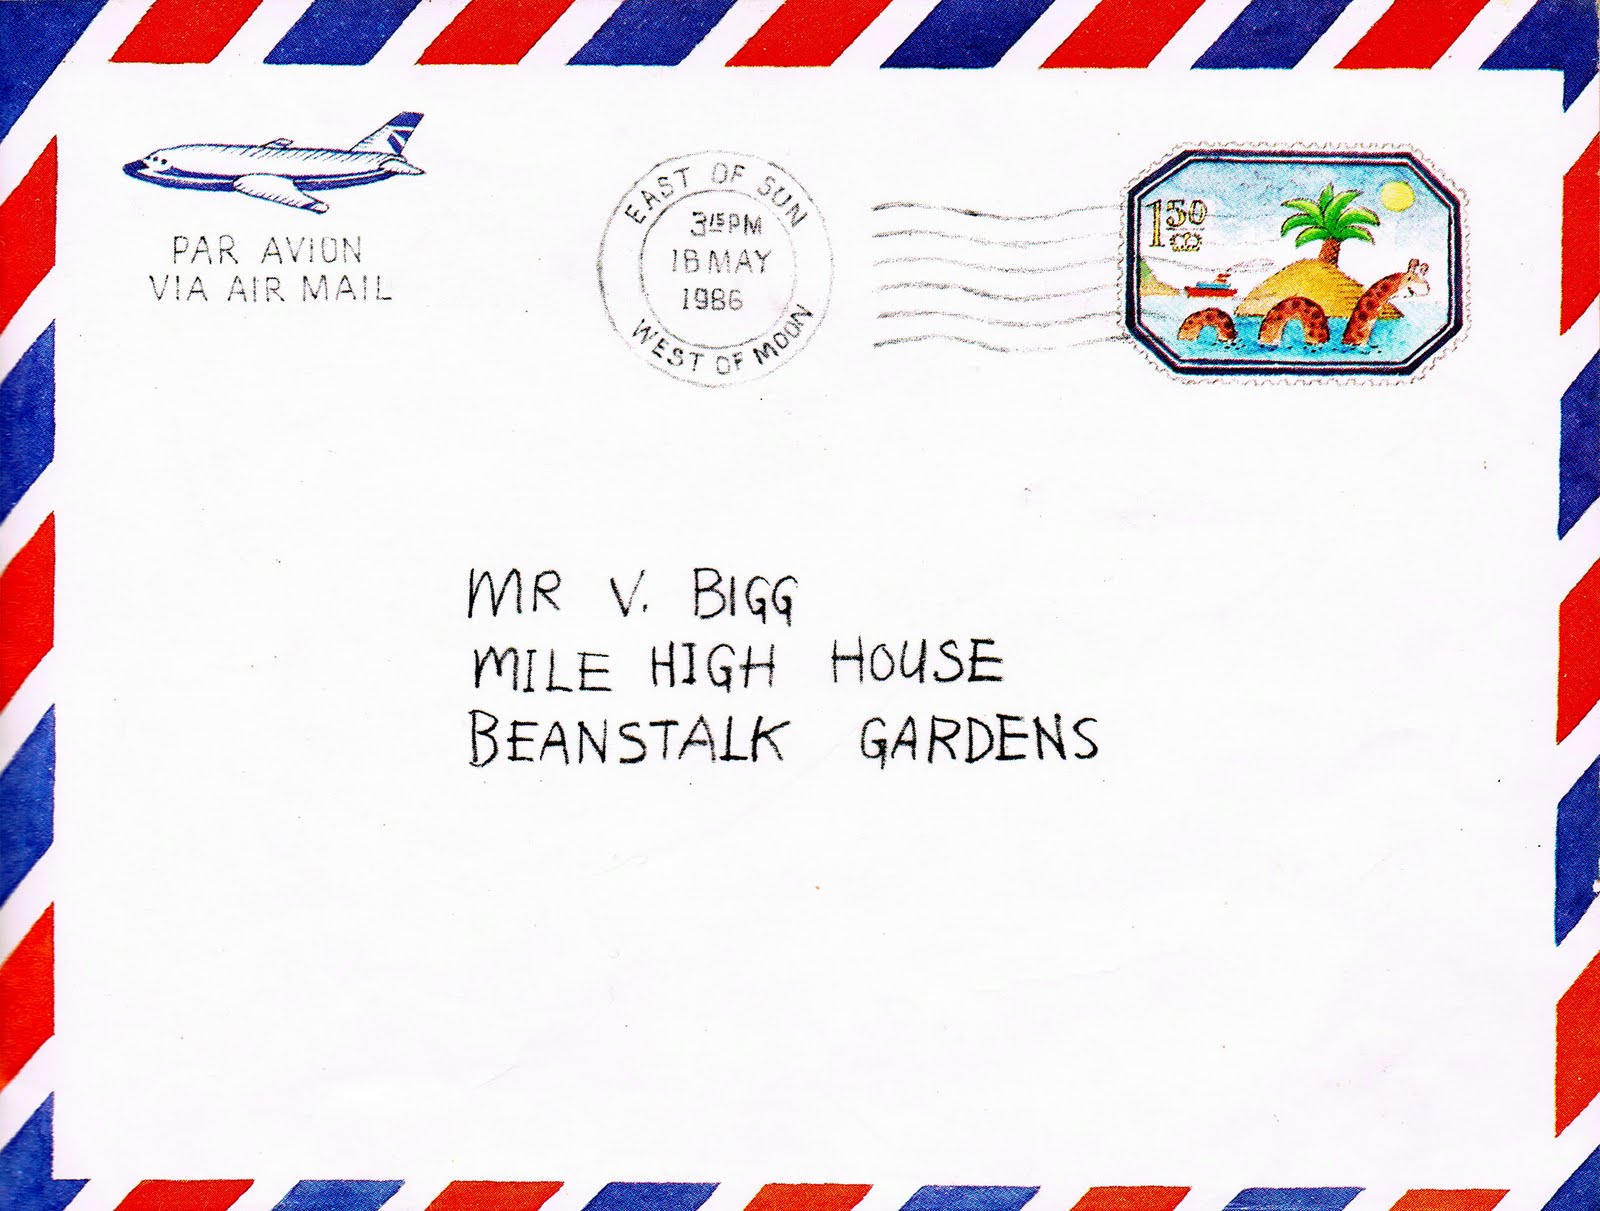 PAR AVION
VIA AIR MAIL
EAST OF SUN
3.15PM
18 MAY
1986
WEST OF MOON
1.50
MR V. BIGG
MILE HIGH HOUSE
BEANSTALK GARDENS